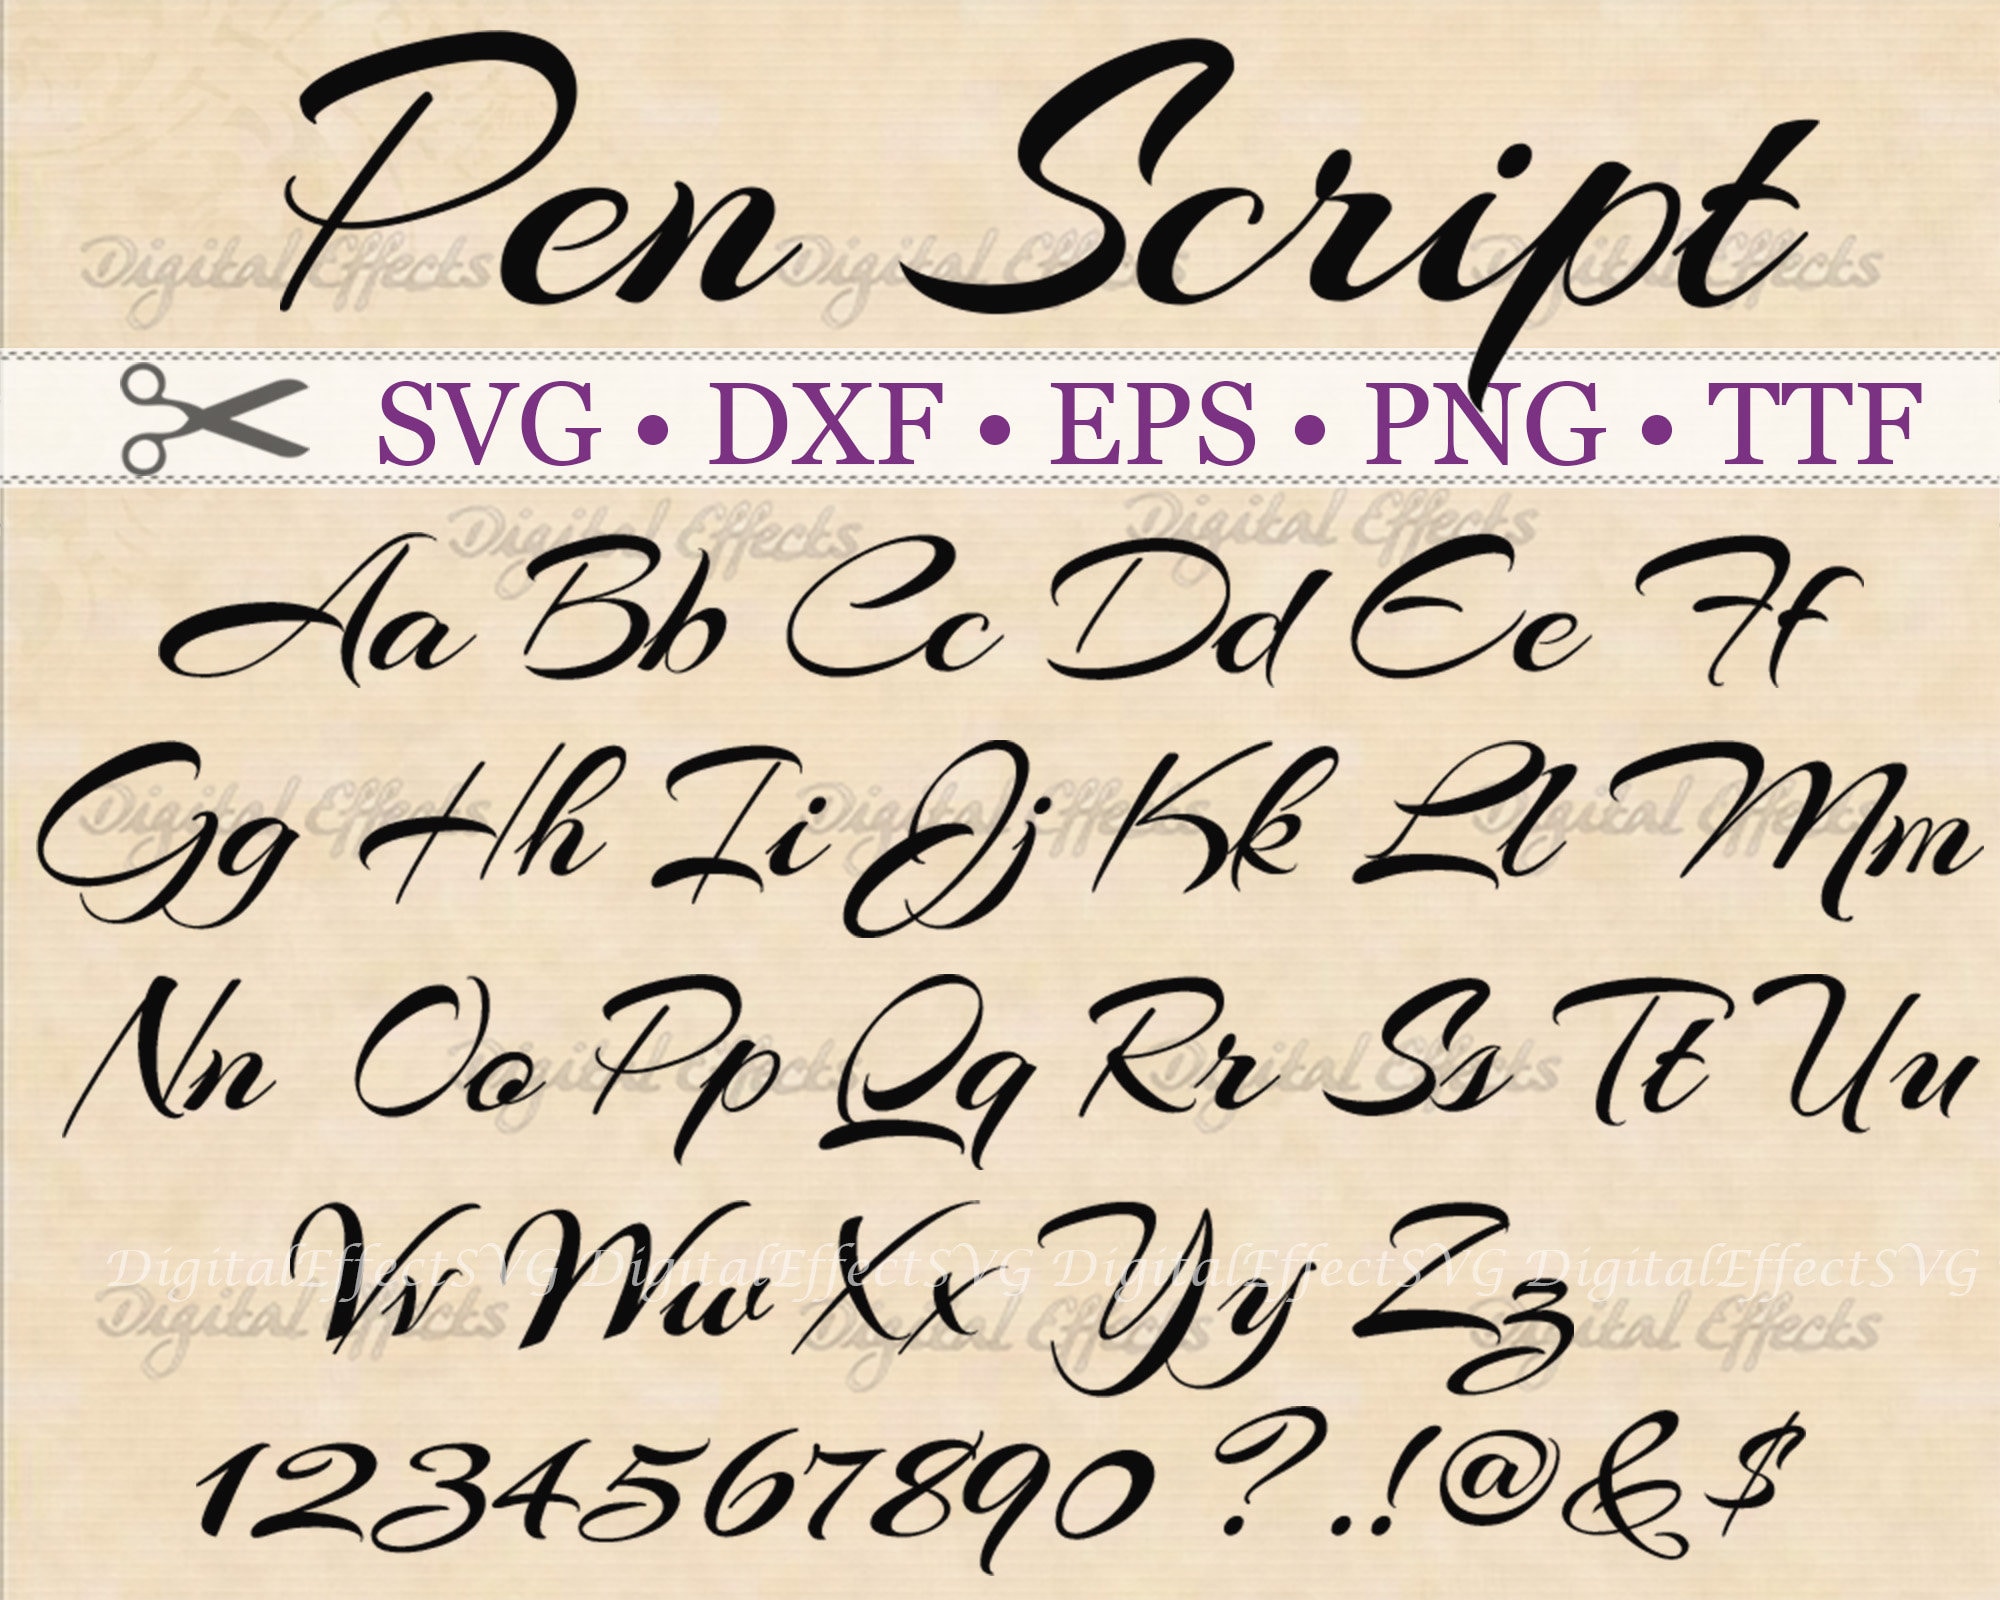 Pen Script
Digital Effects Digital Effects Digital Effects
SVG • DXF • EPS • PNG • TTF
Digital Effects Digital Effects
Aa Bb Cc Dd Ee Ff
Gg Hh Ii Jj Kk Ll Mm
Digital Effects Digital Effects Digital Effects
Nn Oo Pp Qq Rr Ss Tt Uu
Digital Effects Digital Effects
Vv Ww Xx Yy Zz
DigitalEffectSVG DigitalEffectSVG DigitalEffectSVG DigitalEffectSVG
Digital Effects Digital Effects Digital Effects
1234567890 ? . ! @ & $